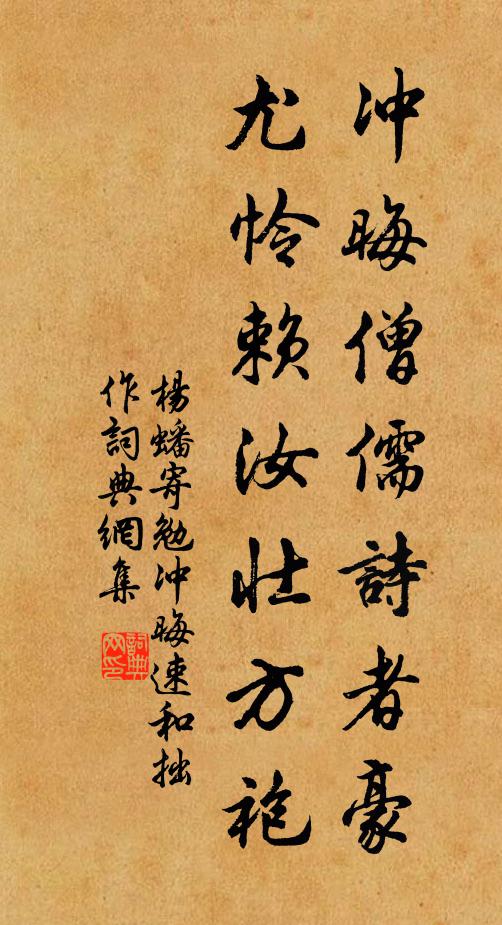 冲晦僧儒詩者豪
尤怜賴汝壯方袍
楊蟠寄勉冲晦速和拙
作詞典網集
詞典網印